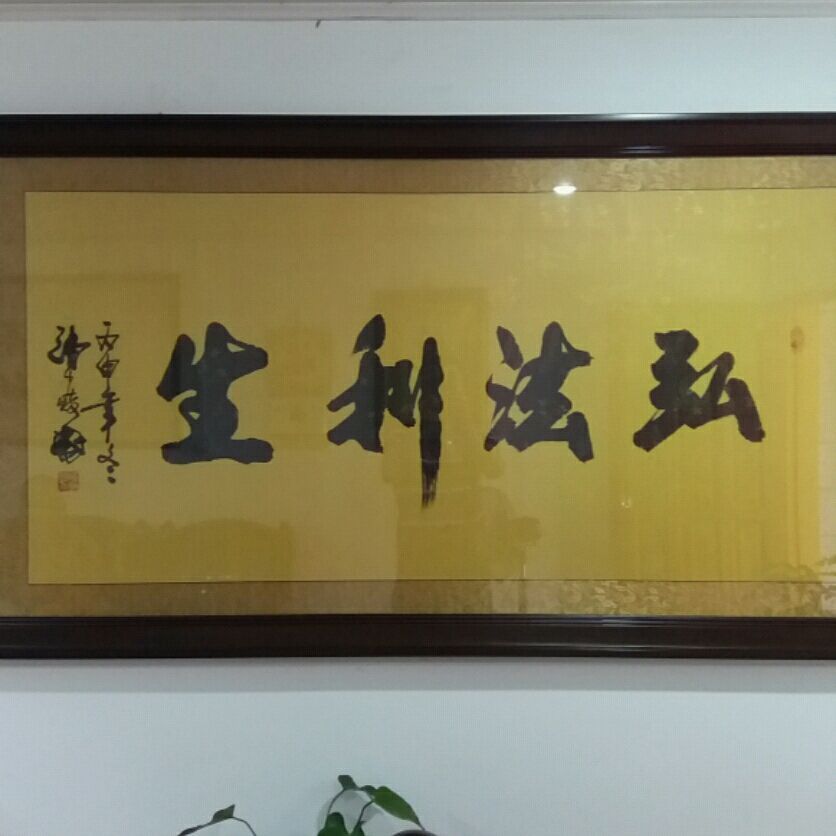 弘法利生
丙申年冬